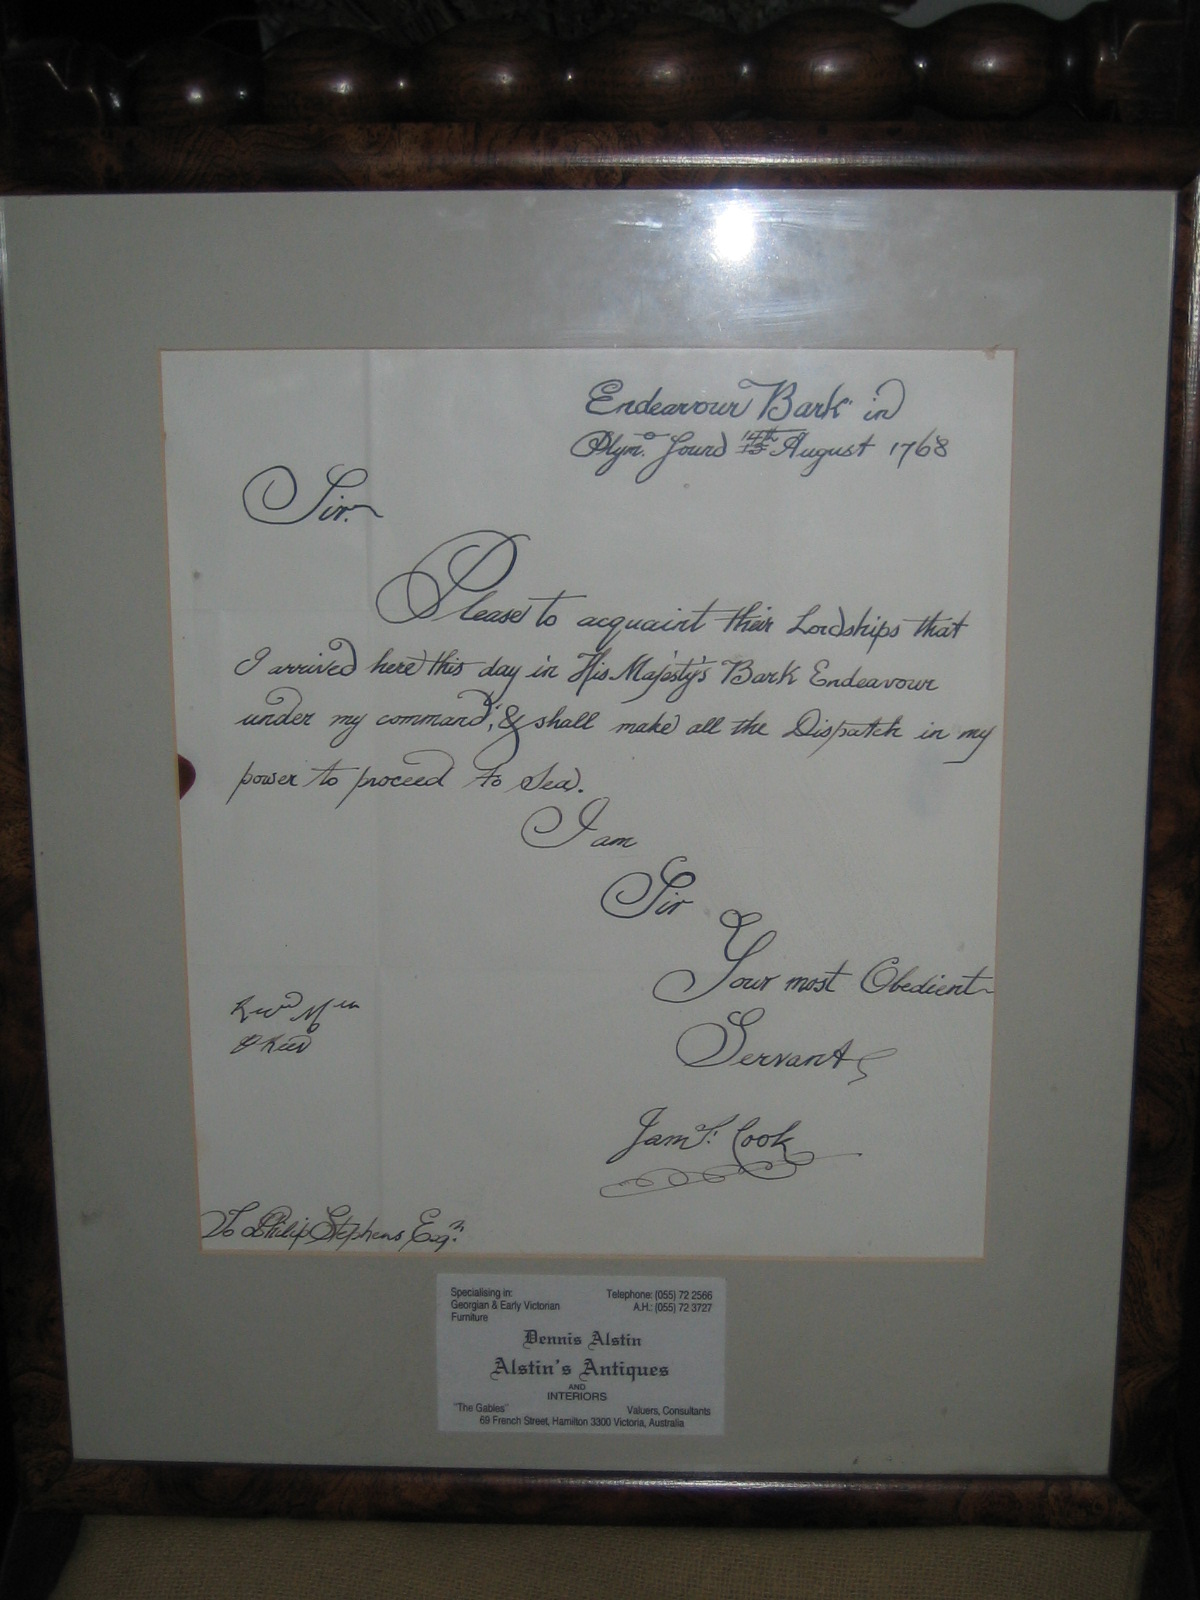 Endeavour Bark in
Plymo. Sound 14th August 1768
Sir.
Please to acquaint their Lordships that
I arrived here this day in His Majesty's Bark Endeavour
under my command, & shall make all the Dispatch in my
power to proceed to Sea.
I am
Sir
Your most Obedient
Servant
Jams. Cook
To Philip Stephens Esqr.
Specialising in:
Georgian & Early Victorian
Furniture
Telephone: (055) 72 2566
A.H.: (055) 72 3727
Dennis Alstin
Alstin's Antiques
AND
INTERIORS
"The Gables"
Valuers, Consultants
69 French Street, Hamilton 3300 Victoria, Australia